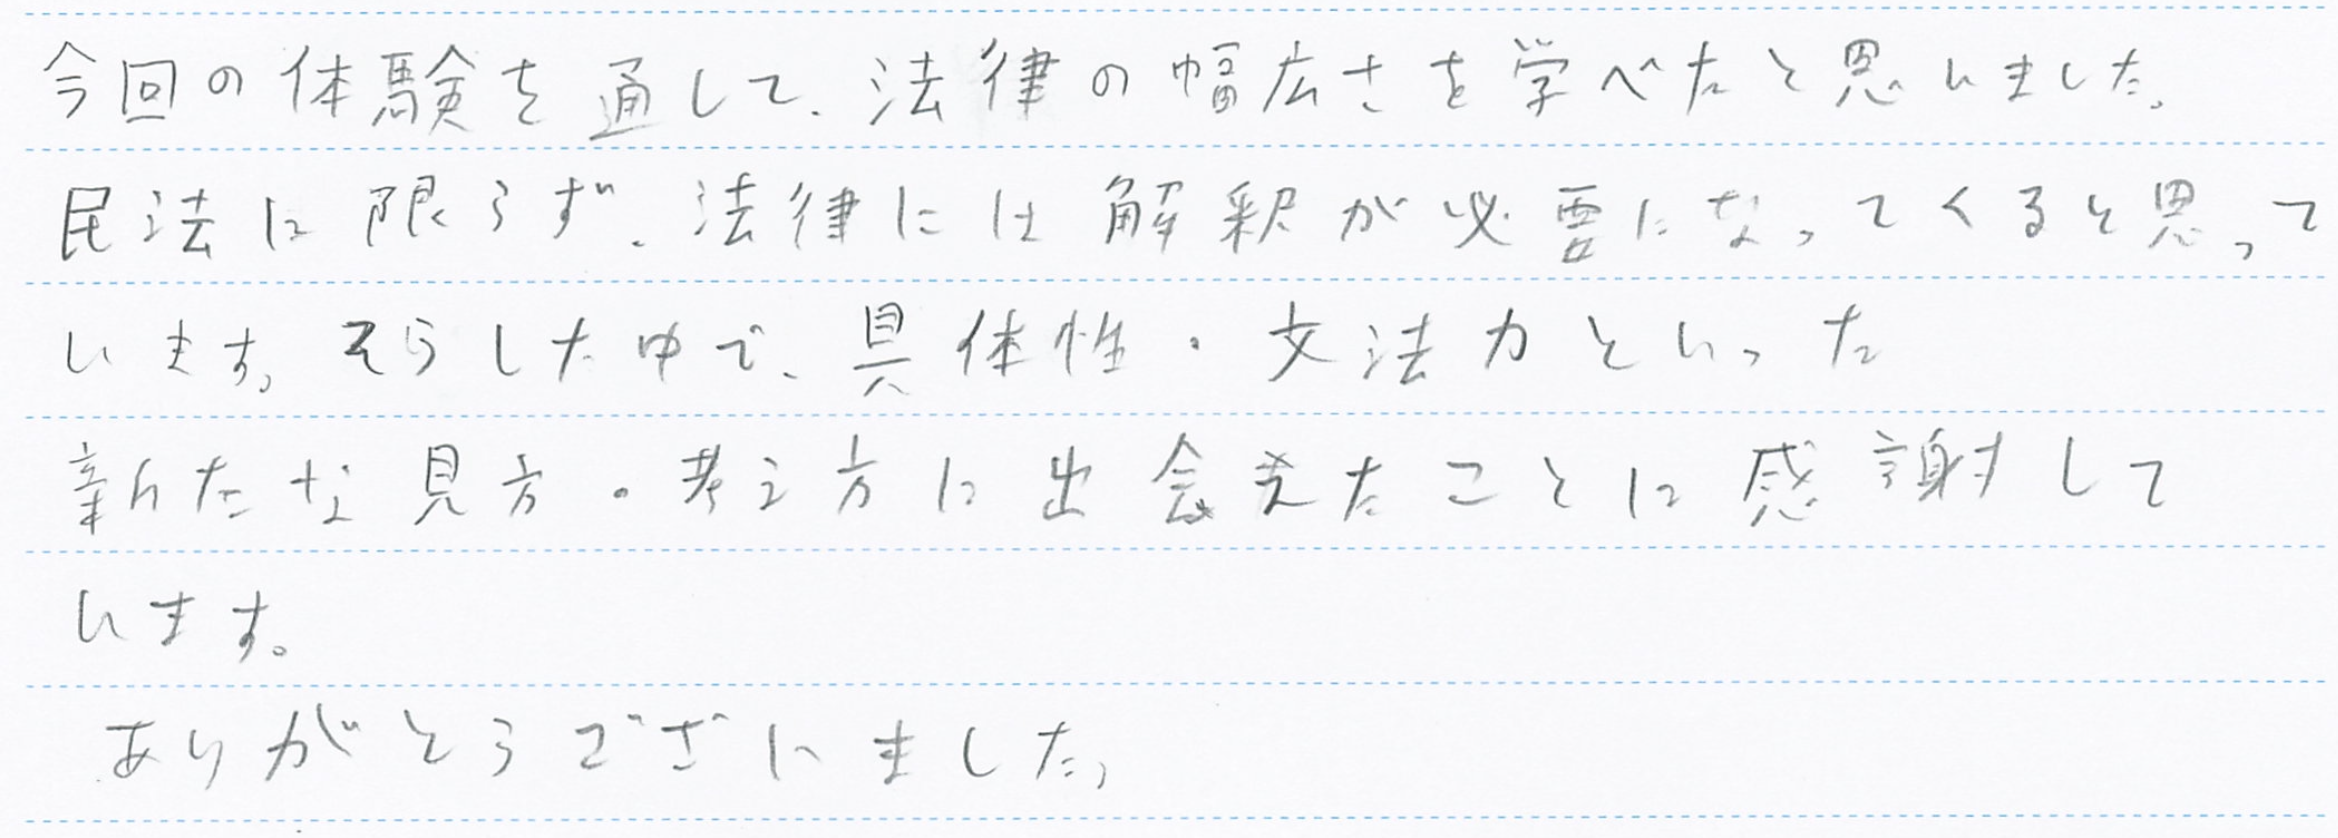 今回の体験を通して、法律の幅広さを学べたと思いました。
民法に限らず、法律には解釈が必要になってくると思って
います。そうした中で、具体性・文法力といった
新たな見方・考え方に出会えたことに感謝して
います。
ありがとうございました。